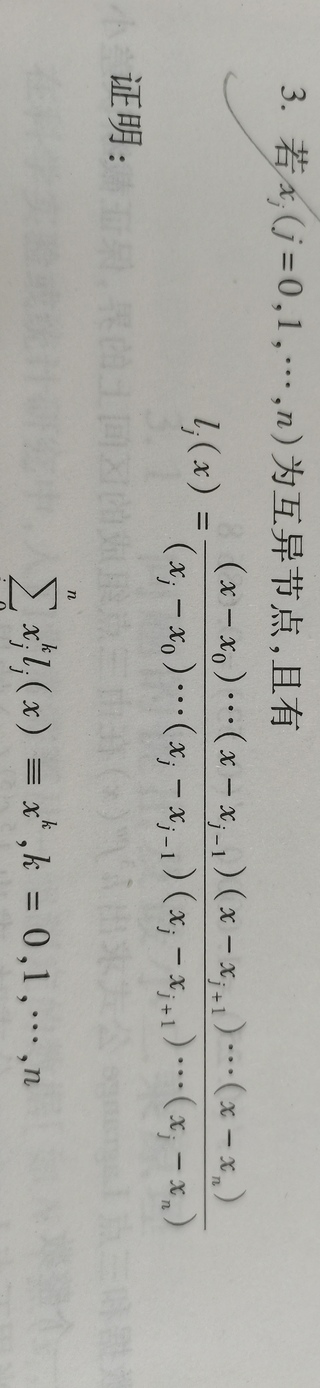 3. 若 x_j (j=0,1,⋯,n)为互异节点,且有
l_j(x) = \frac{(x-x_0)⋯(x-x_{j-1})(x-x_{j+1})⋯(x-x_n)}{(x_j-x_0)⋯(x_j-x_{j-1})(x_j-x_{j+1})⋯(x_j-x_n)}
证明:
\sum^n x_j^k l_j(x) ≡ x^k, k = 0,1,⋯,n